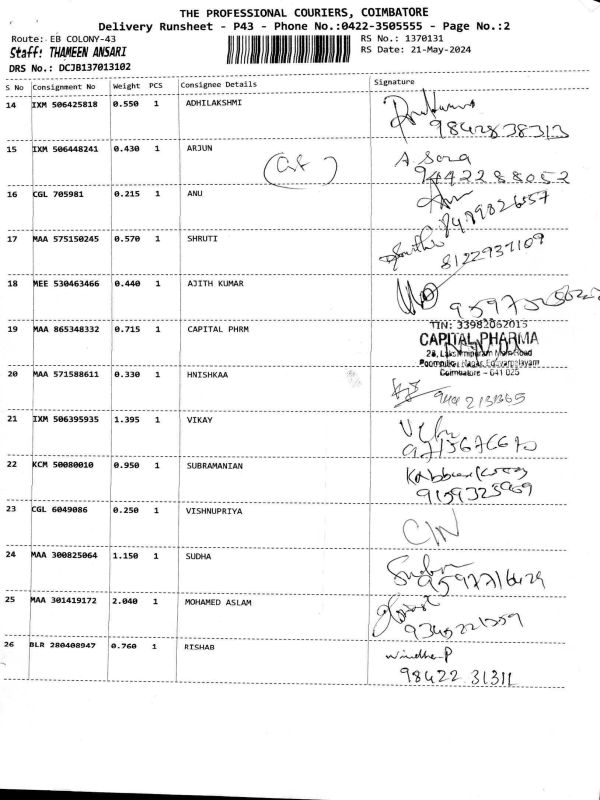 THE PROFESSIONAL COURIERS, COIMBATORE
Delivery Runsheet - P43 - Phone No.:0422-3505555 - Page No.:2
Route: EB COLONY-43 RS No.: 1370131
Staff: THAMEEN ANSARI RS Date: 21-May-2024
DRS No.: DCJB137013102
S No Consignment No Weight PCS Consignee Details Signature
14 IXM 506425818 0.550 1 ADHILAKSHMI
9842838313
15 IXM 506448241 0.430 1 ARJUN A Sona
9442288052
16 CGL 705981 0.215 1 ANU Anu
8479826557
17 MAA 575150245 0.570 1 SHRUTI Shruthi
8122937109
18 MEE 530463466 0.440 1 AJITH KUMAR
19 MAA 865348332 0.715 1 CAPITAL PHRM TIN: 33982062015
CAPITAL PHARMA
Coimbatore - 641 025
20 MAA 571588611 0.330 1 HNISHKAA
21 IXM 506395935 1.395 1 VIKAY
22 KCM 50080010 0.950 1 SUBRAMANIAN
9159325969
23 CGL 6049086 0.250 1 VISHNUPRIYA
C/N
24 MAA 300825064 1.150 1 SUDHA Sudha
9597716429
25 MAA 301419172 2.040 1 MOHAMED ASLAM
9345221559
26 BLR 280408947 0.760 1 RISHAB
98422 31311